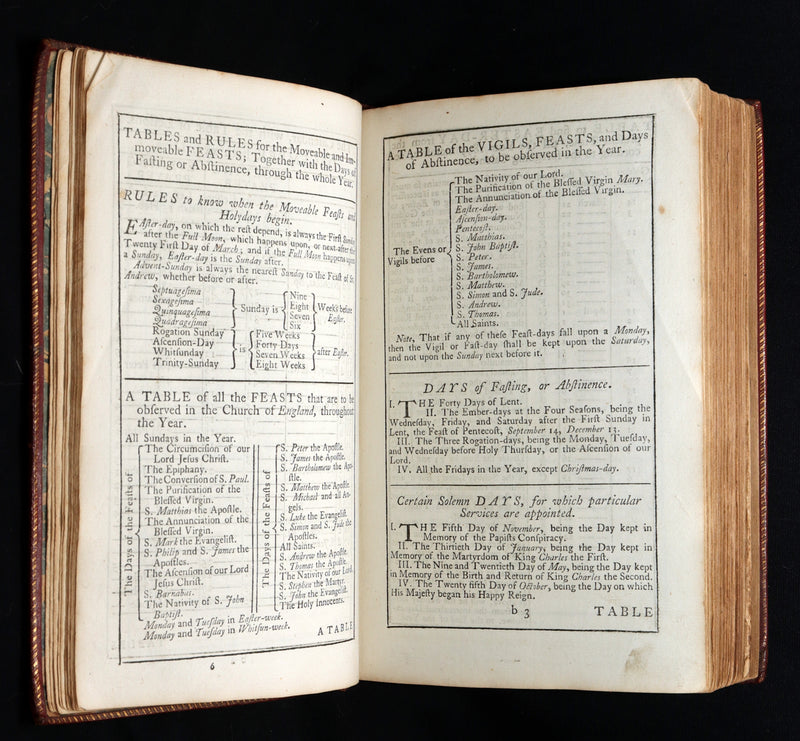 TABLES and RULES for the Moveable and Im-
moveable FEASTS; Together with the Days of
Faſting or Abſtinence, through the whole Year.
RULES to know when the Moveable Feaſts and
Holydays begin.
EAſter-day, on which the reſt depend, is always the Firſt Sunday
after the Full Moon, which happens upon, or next after the
Twenty Firſt Day of March; and if the Full Moon happens upon
a Sunday, Eaſter-day is the Sunday after.
Advent-Sunday is always the neareſt Sunday to the Feaſt of St.
Andrew, whether before or after.
Septuageſima
Sexageſima
Quinquageſima
Quadrageſima
Sunday is
Nine
Eight
Seven
Six
Weeks before
Eaſter.
Rogation Sunday
Aſcenſion-Day
Whitſunday
Trinity-Sunday
is
Five Weeks
Forty Days
Seven Weeks
Eight Weeks
after Eaſter.
A TABLE of all the FEASTS that are to be
obſerved in the Church of England, throughout
the Year.
All Sundays in the Year.
The Days of the Feaſts of
The Circumciſion of our
Lord Jeſus Chriſt.
The Epiphany.
The Converſion of S. Paul.
The Purification of the
Bleſſed Virgin.
S. Matthias the Apoſtle.
The Annunciation of the
Bleſſed Virgin.
S. Mark the Evangeliſt.
S. Philip and S. James the
Apoſtles.
The Aſcenſion of our Lord
Jesus Chriſt.
S. Barnabas.
The Nativity of S. John
Baptiſt.
The Days of the Feaſts of
S. Peter the Apoſtle.
S. James the Apoſtle.
S. Bartholomew the Apo-
ſtle.
S. Matthew the Apoſtle.
S. Michael and all An-
gels.
S. Luke the Evangeliſt.
S. Simon and S. Jude the
Apoſtles.
All Saints.
S. Andrew the Apoſtle.
S. Thomas the Apoſtle.
The Nativity of our Lord.
S. Stephen the Martyr.
S. John the Evangeliſt.
The Holy Innocents.
Monday and Tueſday in Eaſter-week.
Monday and Tueſday in Whitſun-week.
A TABLE
6
A TABLE of the VIGILS, FEASTS, and Days
of Abſtinence, to be obſerved in the Year.
The Evens or
Vigils before
The Nativity of our Lord.
The Purification of the Bleſſed Virgin Mary.
The Annunciation of the Bleſſed Virgin.
Eaſter-day.
Aſcenſion-day.
Pentecoſt.
S. Matthias.
S. John Baptiſt.
S. Peter.
S. James.
S. Bartholomew.
S. Matthew.
S. Simon and S. Jude.
S. Andrew.
S. Thomas.
All Saints.
Note, That if any of theſe Feaſt-days fall upon a Monday,
then the Vigil or Faſt-day ſhall be kept upon the Saturday,
and not upon the Sunday next before it.
DAYS of Faſting, or Abſtinence.
I. THE Forty Days of Lent.
II. The Ember-days at the Four Seaſons, being the
Wedneſday, Friday, and Saturday after the Firſt Sunday in
Lent, the Feaſt of Pentecoſt, September 14, December 13.
III. The Three Rogation-days, being the Monday, Tueſday,
and Wedneſday before Holy Thurſday, or the Aſcenſion of our
Lord.
IV. All the Fridays in the Year, except Chriſtmas-day.
Certain Solemn DAYS, for which particular
Services are appointed.
I. THE Fifth Day of November, being the Day kept in
Memory of the Papiſts Conſpiracy.
II. The Thirtieth Day of January, being the Day kept in
Memory of the Martyrdom of King Charles the Firſt.
III. The Nine and Twentieth Day of May, being the Day kept
in Memory of the Birth and Return of King Charles the Second.
IV. The Twenty fifth Day of October, being the Day on which
His Majeſty began his Happy Reign.
b 3
TABLE